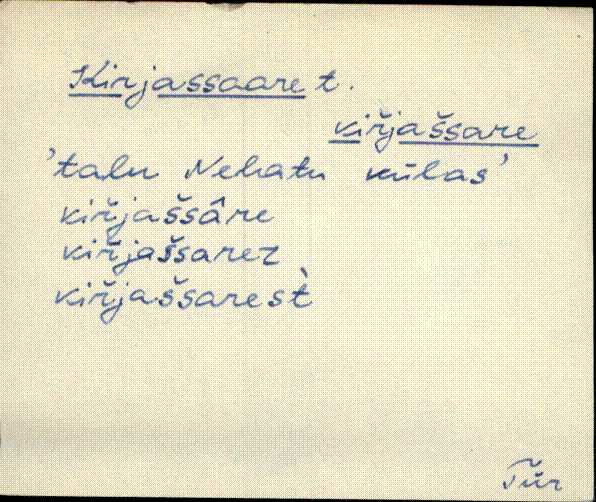 Kirjassaare t.
kiřjaššare
'talu Nehatu külas'
kiřjaššâre
kiřjaššarez
kiřjaššarest̀
Tür